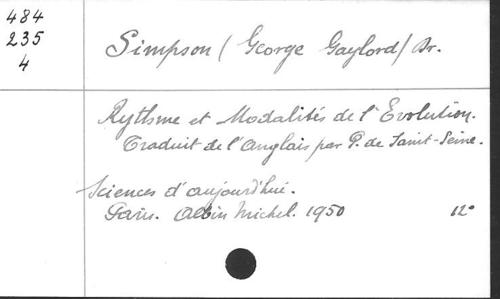 484
235
4
Simpson (George Gaylord) Dr.
Rythme et Modalités de l'Evolution.
Traduit de l'anglais par P. de Saint-Seine.
Sciences d'aujourd'hui.
Paris. Albin Michel. 1950 12°